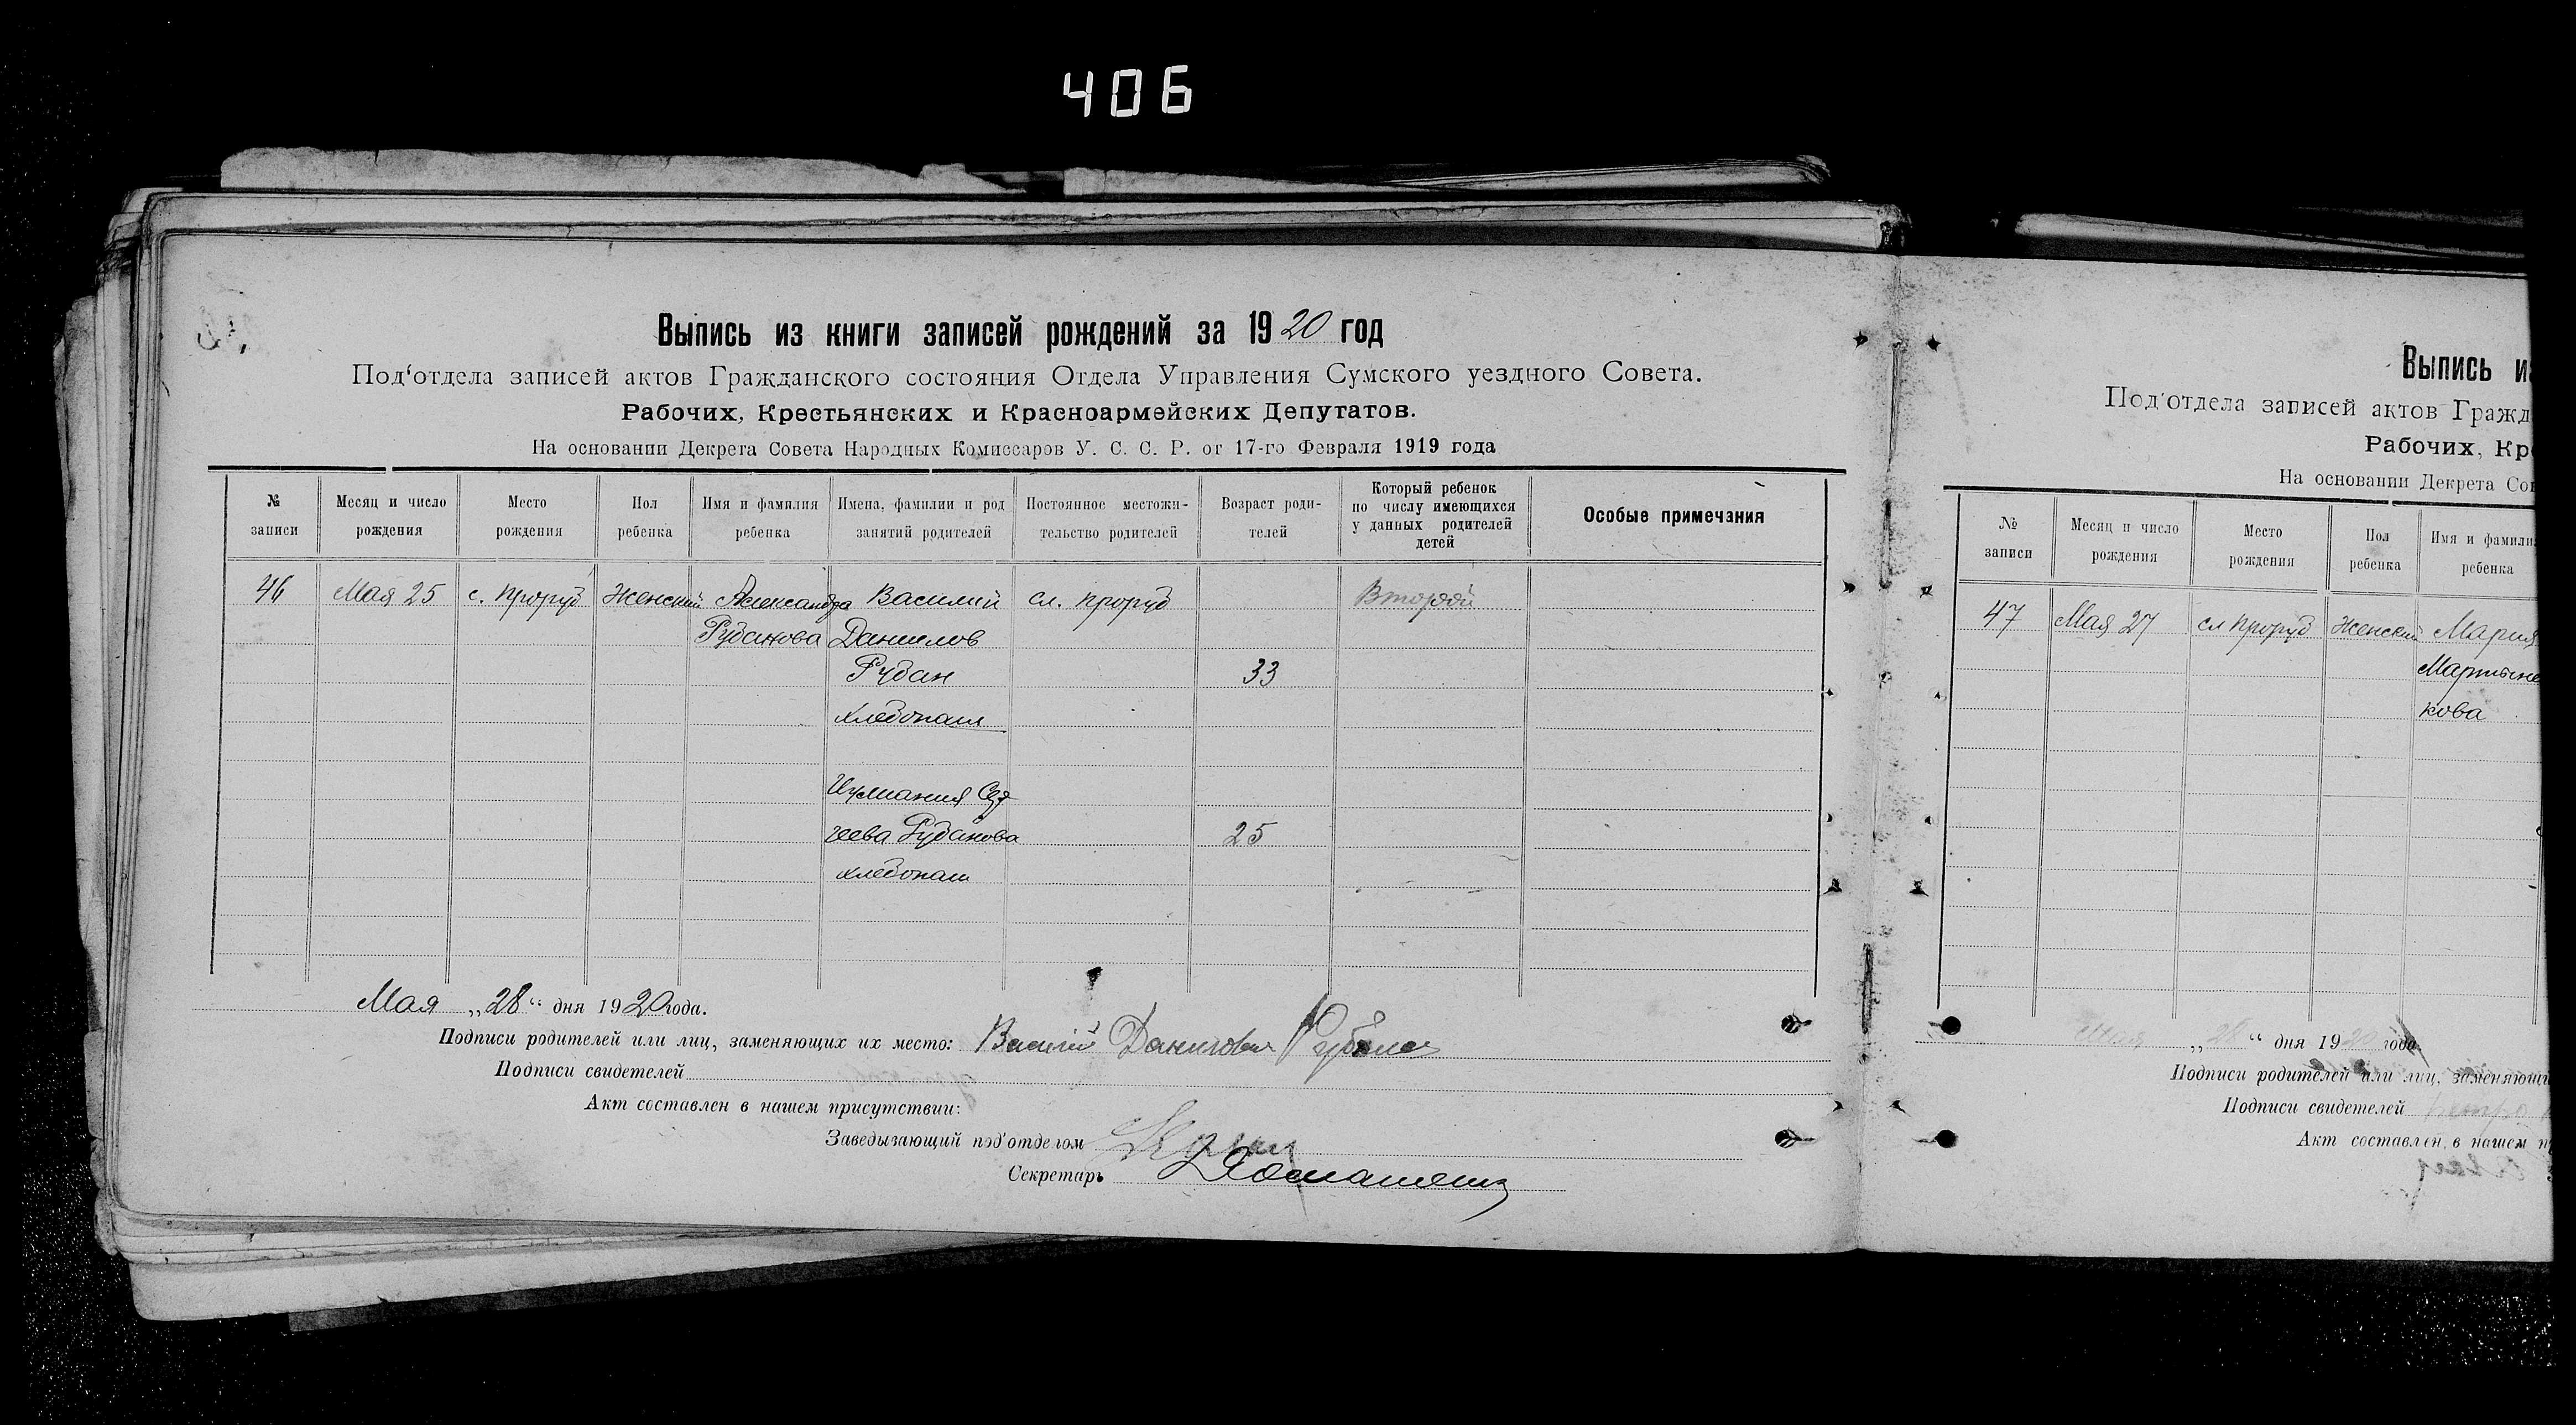 406
Выпись из книги записей рождений за 1920 год
Под‘отдела записей актов Гражданского состояния Отдела Управления Сумского уездного Совета.
Рабочих, Крестьянских и Красноармейских Депутатов.
На основании Декрета Совета Народных Комиссаров У. С. С. Р. от 17-го Февраля 1919 года
№ записи
Месяц и число рождения
Место рождения
Пол ребенка
Имя и фамилия ребенка
Имена, фамилии и род занятий родителей
Постоянное местожительство родителей
Возраст родителей
Который ребенок по числу имеющихся у данных родителей детей
Особые примечания
46 Мая 25 с. Проруб Женский Александра Василий сл. Проруб Второй
Рубанова Данилов
Рубан 33
хлебопаш
геева Рубанова 25
хлебопаш
Мая „28“ дня 1920 года.
Подписи родителей или лиц, заменяющих их место: Василий Данилович Рубан
Подписи свидетелей
Акт составлен в нашем присутствии:
Заведывающий под‘отделом
Секретарь
Выпись из
Под‘отдела записей актов Гражд
Рабочих, Кре
На основании Декрета Сов
№ записи
Месяц и число рождения
Место рождения
Пол ребенка
Имя и фамили
ребенка
47 Мая 27 сл Проруб Женский Мария
Мартыне
кова
Мая „28“ дня 1920 года.
Подписи родителей или лиц, заменяющи
Подписи свидетелей
Акт составлен в нашем п